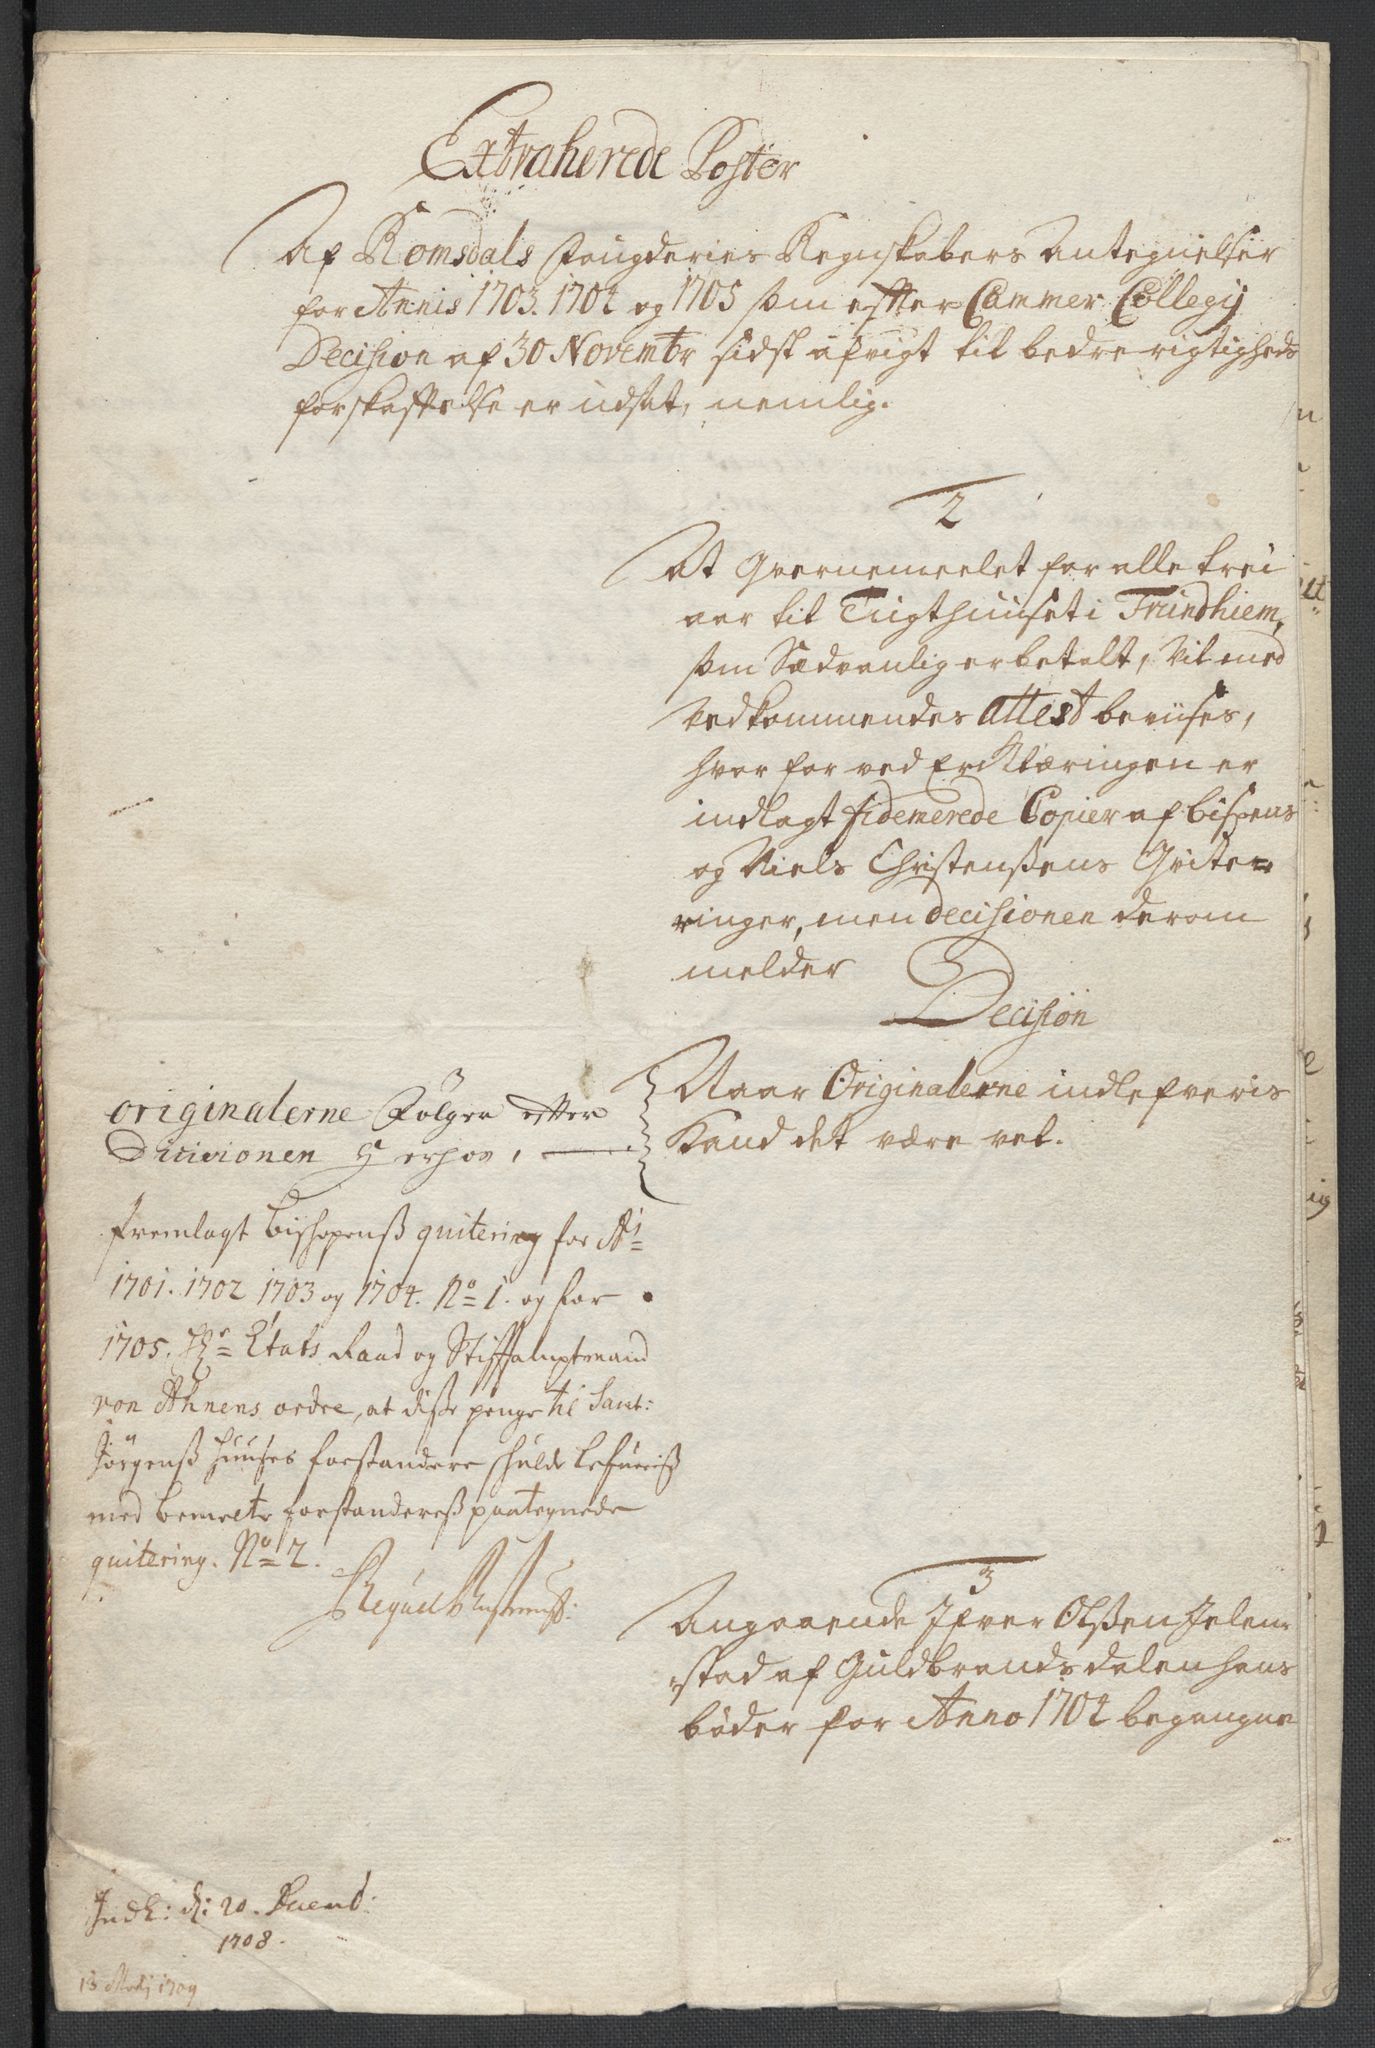 Extraherede Poster
Af Romsdals Fougderies Regnskabers Antegnelser
for Annis 1703. 1704 og 1705 som efter Cammer Collegij
Decision af 30 Novembr sidst afvigt til bedre rigtigheds
forskaffelse er udsat, nemlig.
2
At Qvernemeelet for alle trei
aar til Tugthuuset i Trundhiem,
som Sædvanlig er betalt, Vil med
Vedkommendes Attest beviises,
hvor for ved Erklæringen er
indlagt fidemerede Copier af bispens
og Niels Christenßens Qvite=
ringer, men decisionen derom
melder
Decision
Naar Originalerne indlefveris
Kand det være vel.
originalerne Følger efter
Dicisionen herhos,
fremlagt Bishopenß quitering for A:
1701. 1702 1703 og 1704. No 1. og for
1705. Hr Etats Raad og Stiftamptmand
von Ahnens ordre, at diße penge til Sanct:
Jörgenß Huuses forstandere skulde lefueriß
med bemelte forstandereß paategnede
quitering. No 2.
3
Angaaende Ifver Olßen Jelen=
stad af Guldbrandsdalen hans
bøder for Anno 1704 begangne
Indl: d: 20.
1708.
13 Maij 1709